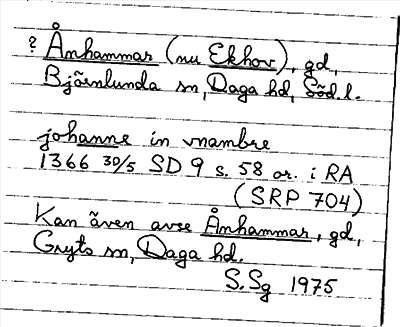 ? Ånhammar (nu Ekhov), gd,
Björnlunda sn, Daga hd, Söd. l.
johanne in vnambre
1366 30/5 SD 9 s. 58 or. i RA
(SRP 704)
Kan även avse Ånhammar, gd,
Gryts sn, Daga hd.
S.Sg 1975